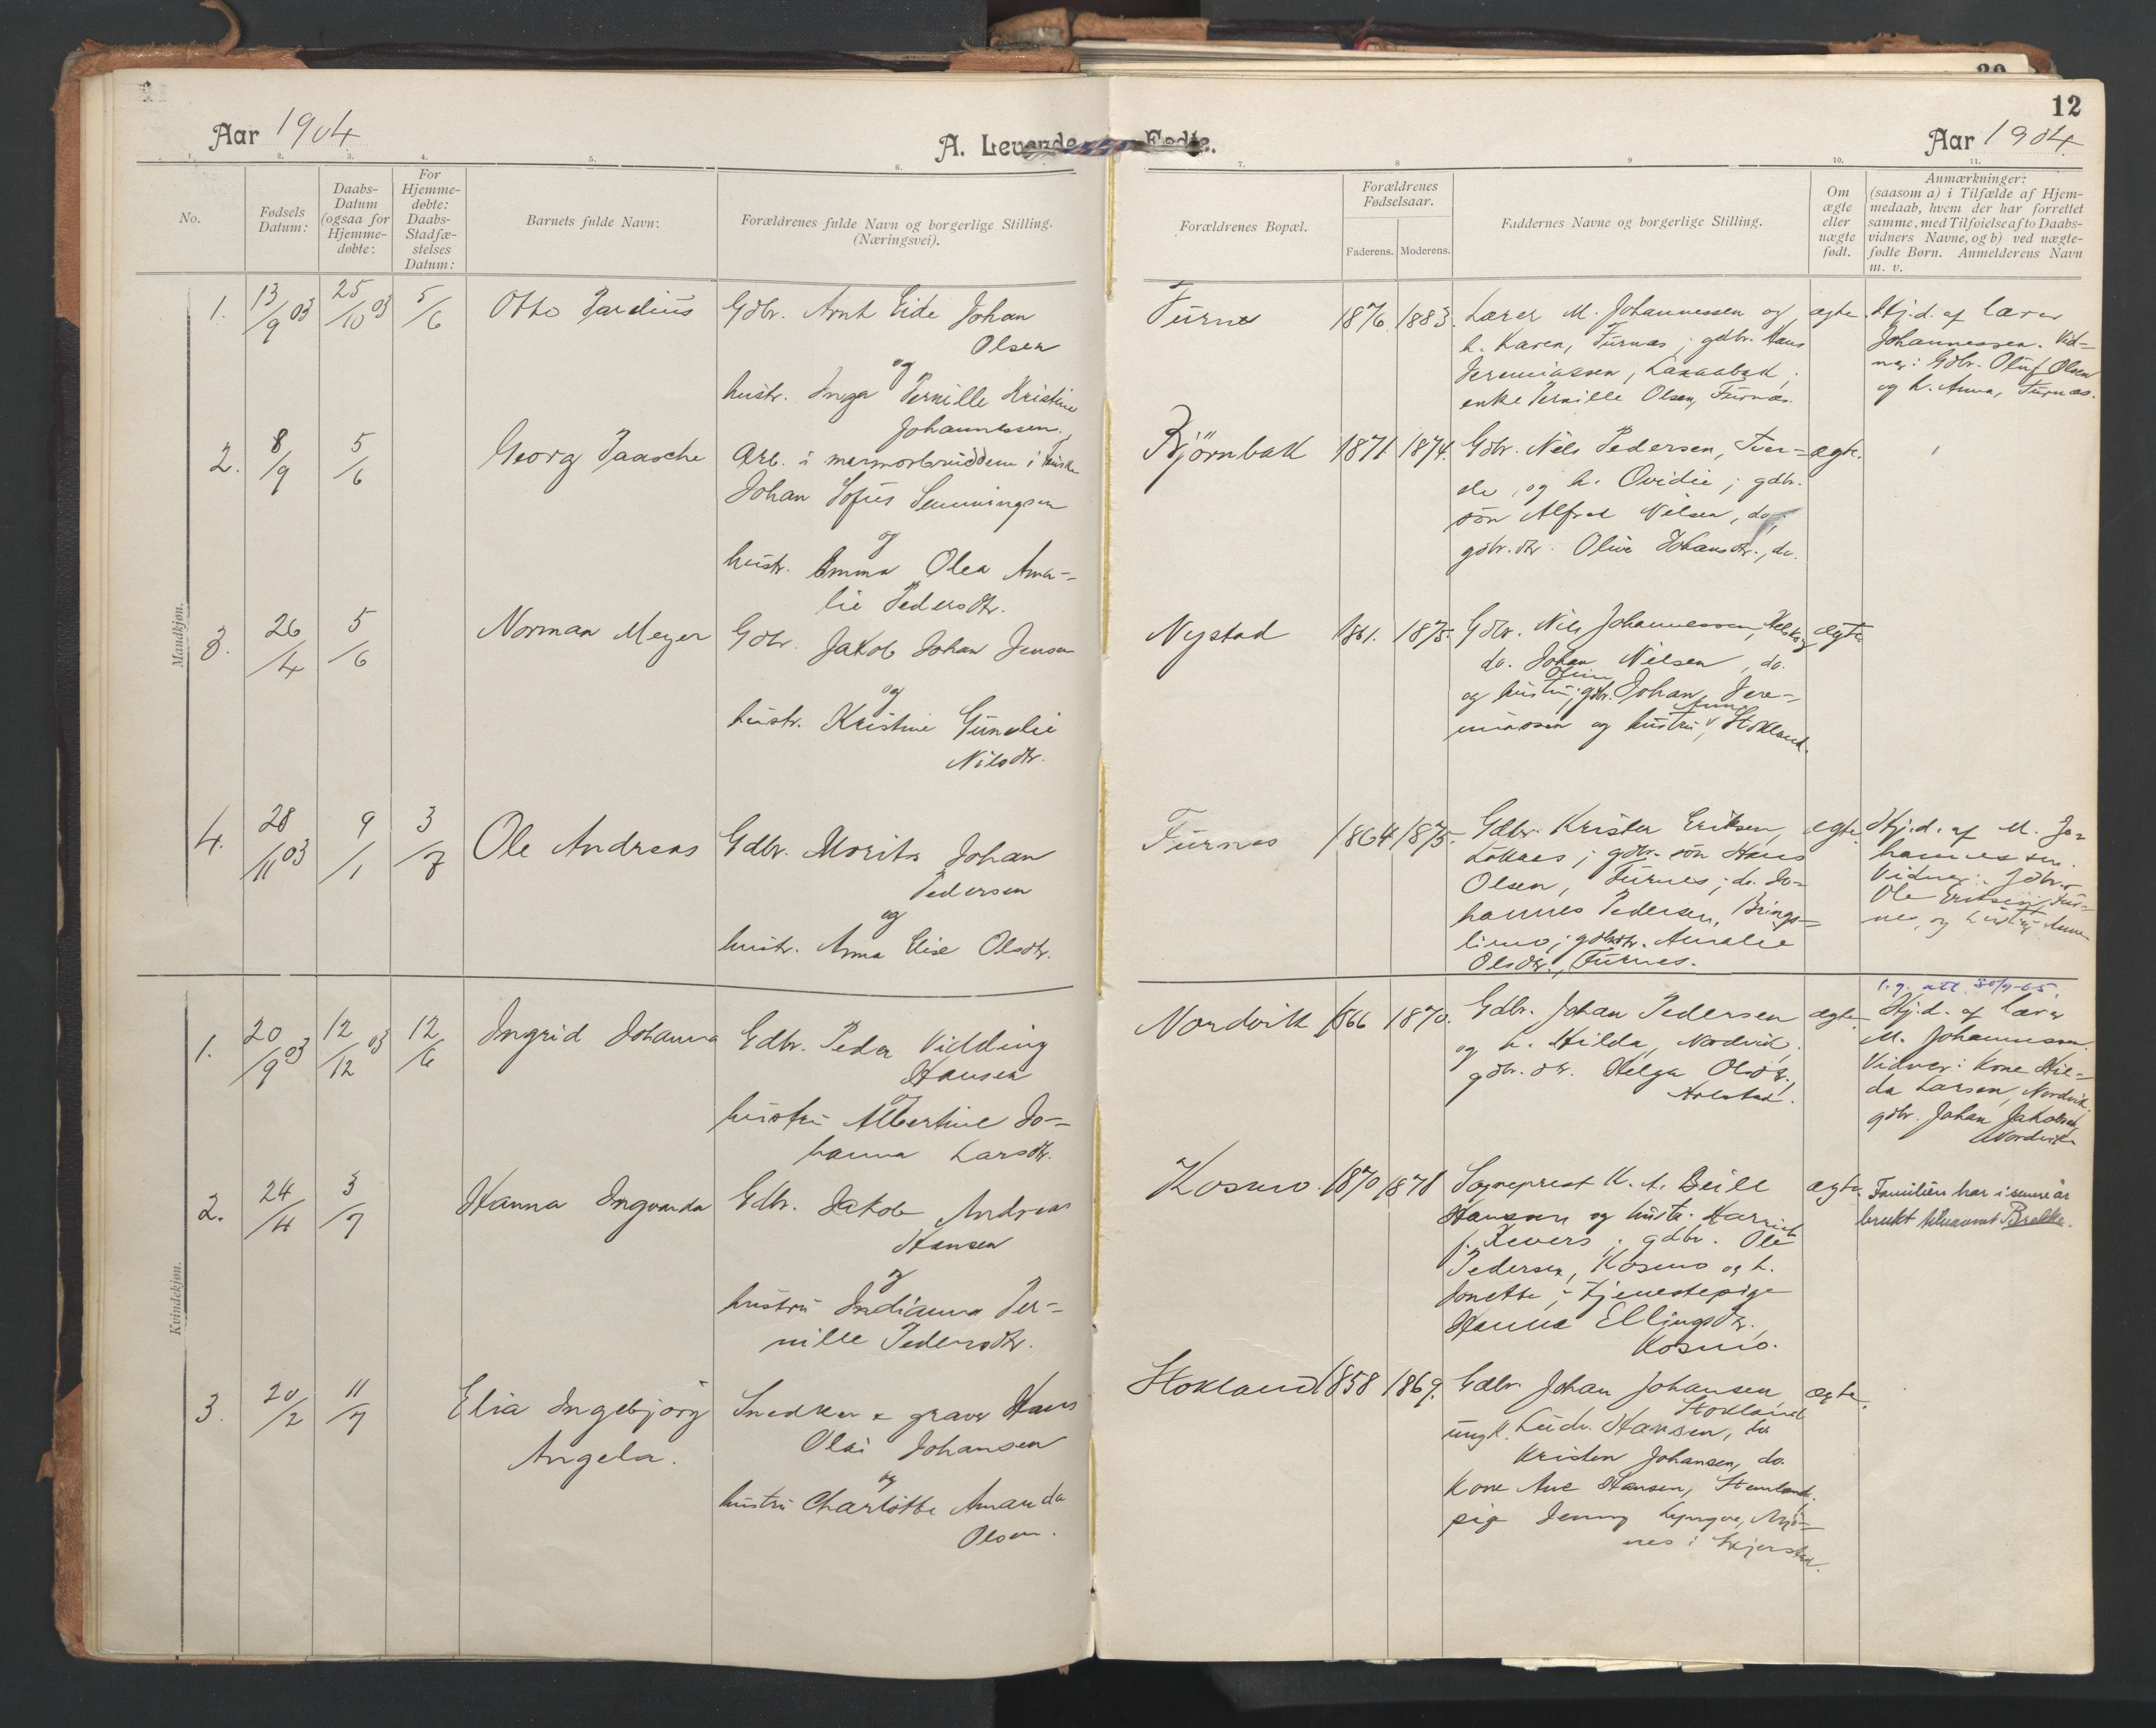 12
Aar 1904
A. Levende Fødte.
Aar 1904.
1. 2. 3. 4. 5. 6. 7. 8 9 10. 11.
No.
Fødsels Datum:
Daabs-
Datum
(ogsaa for
Hjemme-
døbte:
For
Hjemme-
døbte:
Daabs-
Stadfæ-
stelses
Datum:
Barnets fulde Navn:
Forældrenes fulde Navn og borgerlige Stilling.
(Næringsvei).
Forældrenes Bopæl.
Forældrenes
Fødselsaar.
Faderens. Moderens.
Faddernes Navne og borgerlige Stilling.
Om
ægte
eller
uægte
født.
Anmærkninger:
(saasom a) i Tilfælde af Hjem-
medaab, hvem der har forrettet
samme, med Tilføielse af to Daabs-
vidners Navne, og b) ved uægte-
fødte Børn. Anmelderens Navn
m. v.
Mandkjøn.
1. 13/9 03 25/10 03 5/6 Otto
Gdbr. Arnt Eide Johan
Olsen
og
hustr. Inga Pernille Kristine
Johannessen.
Furnes 1876. 1883.
Lærer M. Johannessen og
h. Karen, Furnes; gdbr. Hans
Jeremiassen,
enke Pernille Olsen, Furnes.
ægte.
Hj.d. af lærer
Johannessen. Vid-
ner: Gdbr. Oluf Olsen
og h. Anna, Furnes.
2. 8/9 5/6 Georg Paasche
Arb. i marmorbruddene i
Johan Sofus Semmingsen
og
hustr. Emma Olea Ama-
lie Pedersdtr.
Bjørnbak 1871 1874.
Gdbr. Nils Pedersen, Tver-
, og h. Ovidie; gdbr.
søn Alfred Nilsen, do;
gdbr.dtr. Olive Johansdtr., do.
ægte.
3. 26/4 5/6 Norman Meyer
Gdbr. Jakob Johan Jensen
og
hustr. Kristine Gunelie
Nilsdtr.
Nystad 1861. 1875.
Gdbr. Nils Johannessen,
do. Johan Nilsen, do.
og hustru Oline; gdbr. Johan Jere-
miassen og hustru Anna, Stokland.
ægte
4. 28/11 03 9/1 3/7 Ole Andreas
Gdbr. Morits Johan
Pedersen
og
hustr. Anna Elise Olsdtr.
Furnes 1864 1875.
Gdbr. Krister Eriksen,
; gdbr. søn Hans
Olsen, Furnes; do. Jo-
hannes Pedersen, Brings-
limo; gdbrdtr. Amalie
Olsdtr., Furnes.
ægte.
Hj.d. af M. Jo-
hannessen.
Vidner: Gdbr.
Ole Eriksen, Fur-
nes, og hustru Anna
Kvindekjøn.
1. 20/9 03 12/12 03 12/6 Ingrid Johanna
Gdbr. Peder Vidding
Hansen
og
hustru Albertine Jo-
hanna Larsdtr.
Nordvik 1866 1870.
Gdbr. Johan Pedersen
og h. Hilda, Nordvik;
gdbr. dtr. Helga Olsdtr.,
ægte.
Hj.d. af lærer
M. Johannessen.
Vidner: Kone Hil-
da Larsen, Nordvik,
gdbr. Johan Jakobsen,
Nordvik
2. 24/4 3/7 Hanna Ingvarda
Gdbr. Jakob Andreas
Hansen
og
hustru Indianna Per-
nille Pedersdtr.
Kosmo. 1870 1871
Sogneprest K. A. Beill
Hanssen og hustr. Harriet
f. Sievers; gdbr. Ole
Pedersen, Kosmo og h.
Jonette; tjenestepige
Hanna Ellingsdtr.,
Kosmo.
ægte.
Familien har i senere år
brukt tilnavnet Brekke.
3. 20/2 11/7 Elia Ingebjørg
Angela.
Snedker & graver Hans
Olai Johansen
og
hustru Charlotte Amanda
Olsen.
Stokland 1858 1869.
Gdbr. Johan Johansen
Stokland
ungk. Ludv. Hansen, do
Kristen Johansen, do.
Kone Ane Hansen,
pige Jenny
nes i Skjerstad.
ægte.